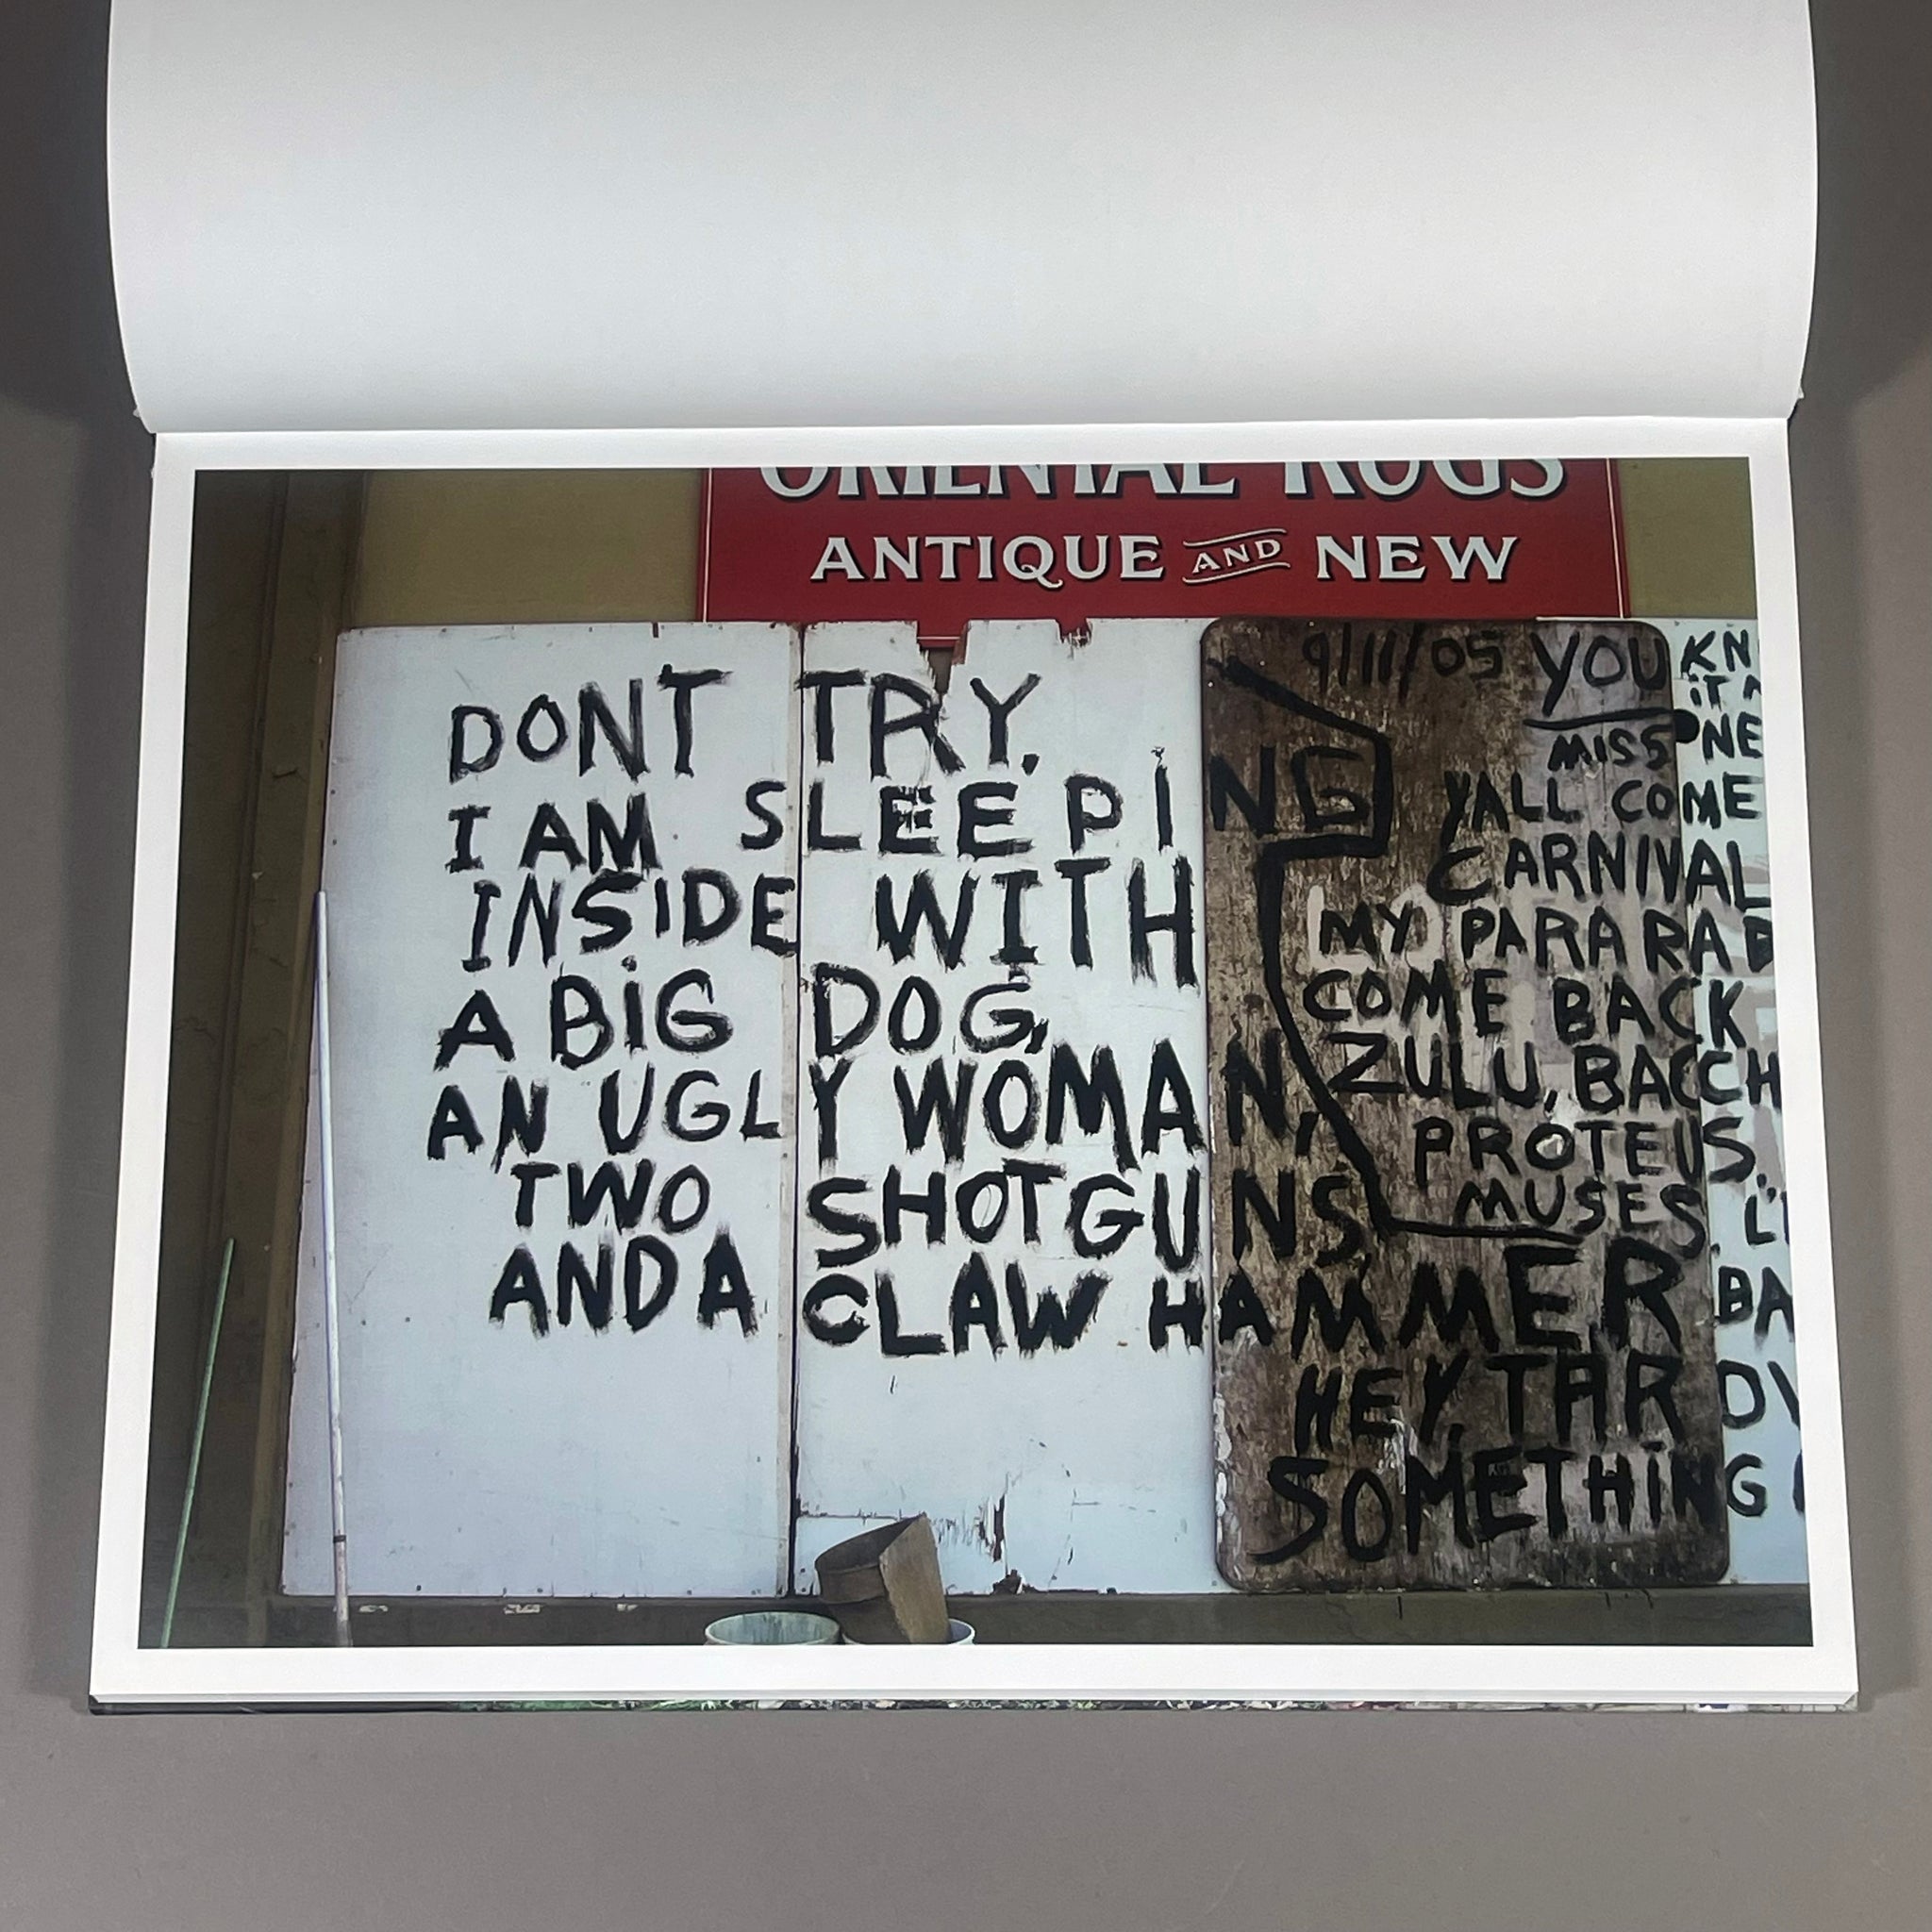 ORIENTAL RUGS
ANTIQUE AND NEW
DONT TRY.
I AM SLEEPING
INSIDE WITH
A BIG DOG,
AN UGLY WOMAN,
TWO SHOTGUNS,
AND A CLAW HAMMER
9/11/05 YOU KN
iT
MISS
Y'ALL COME
CARNIVAL
MY PARARAD
COME BACK
ZULU, BACCH
PROTEUS..
MUSES. Li
BA
HEY, TAR DY
SOMETHiNG